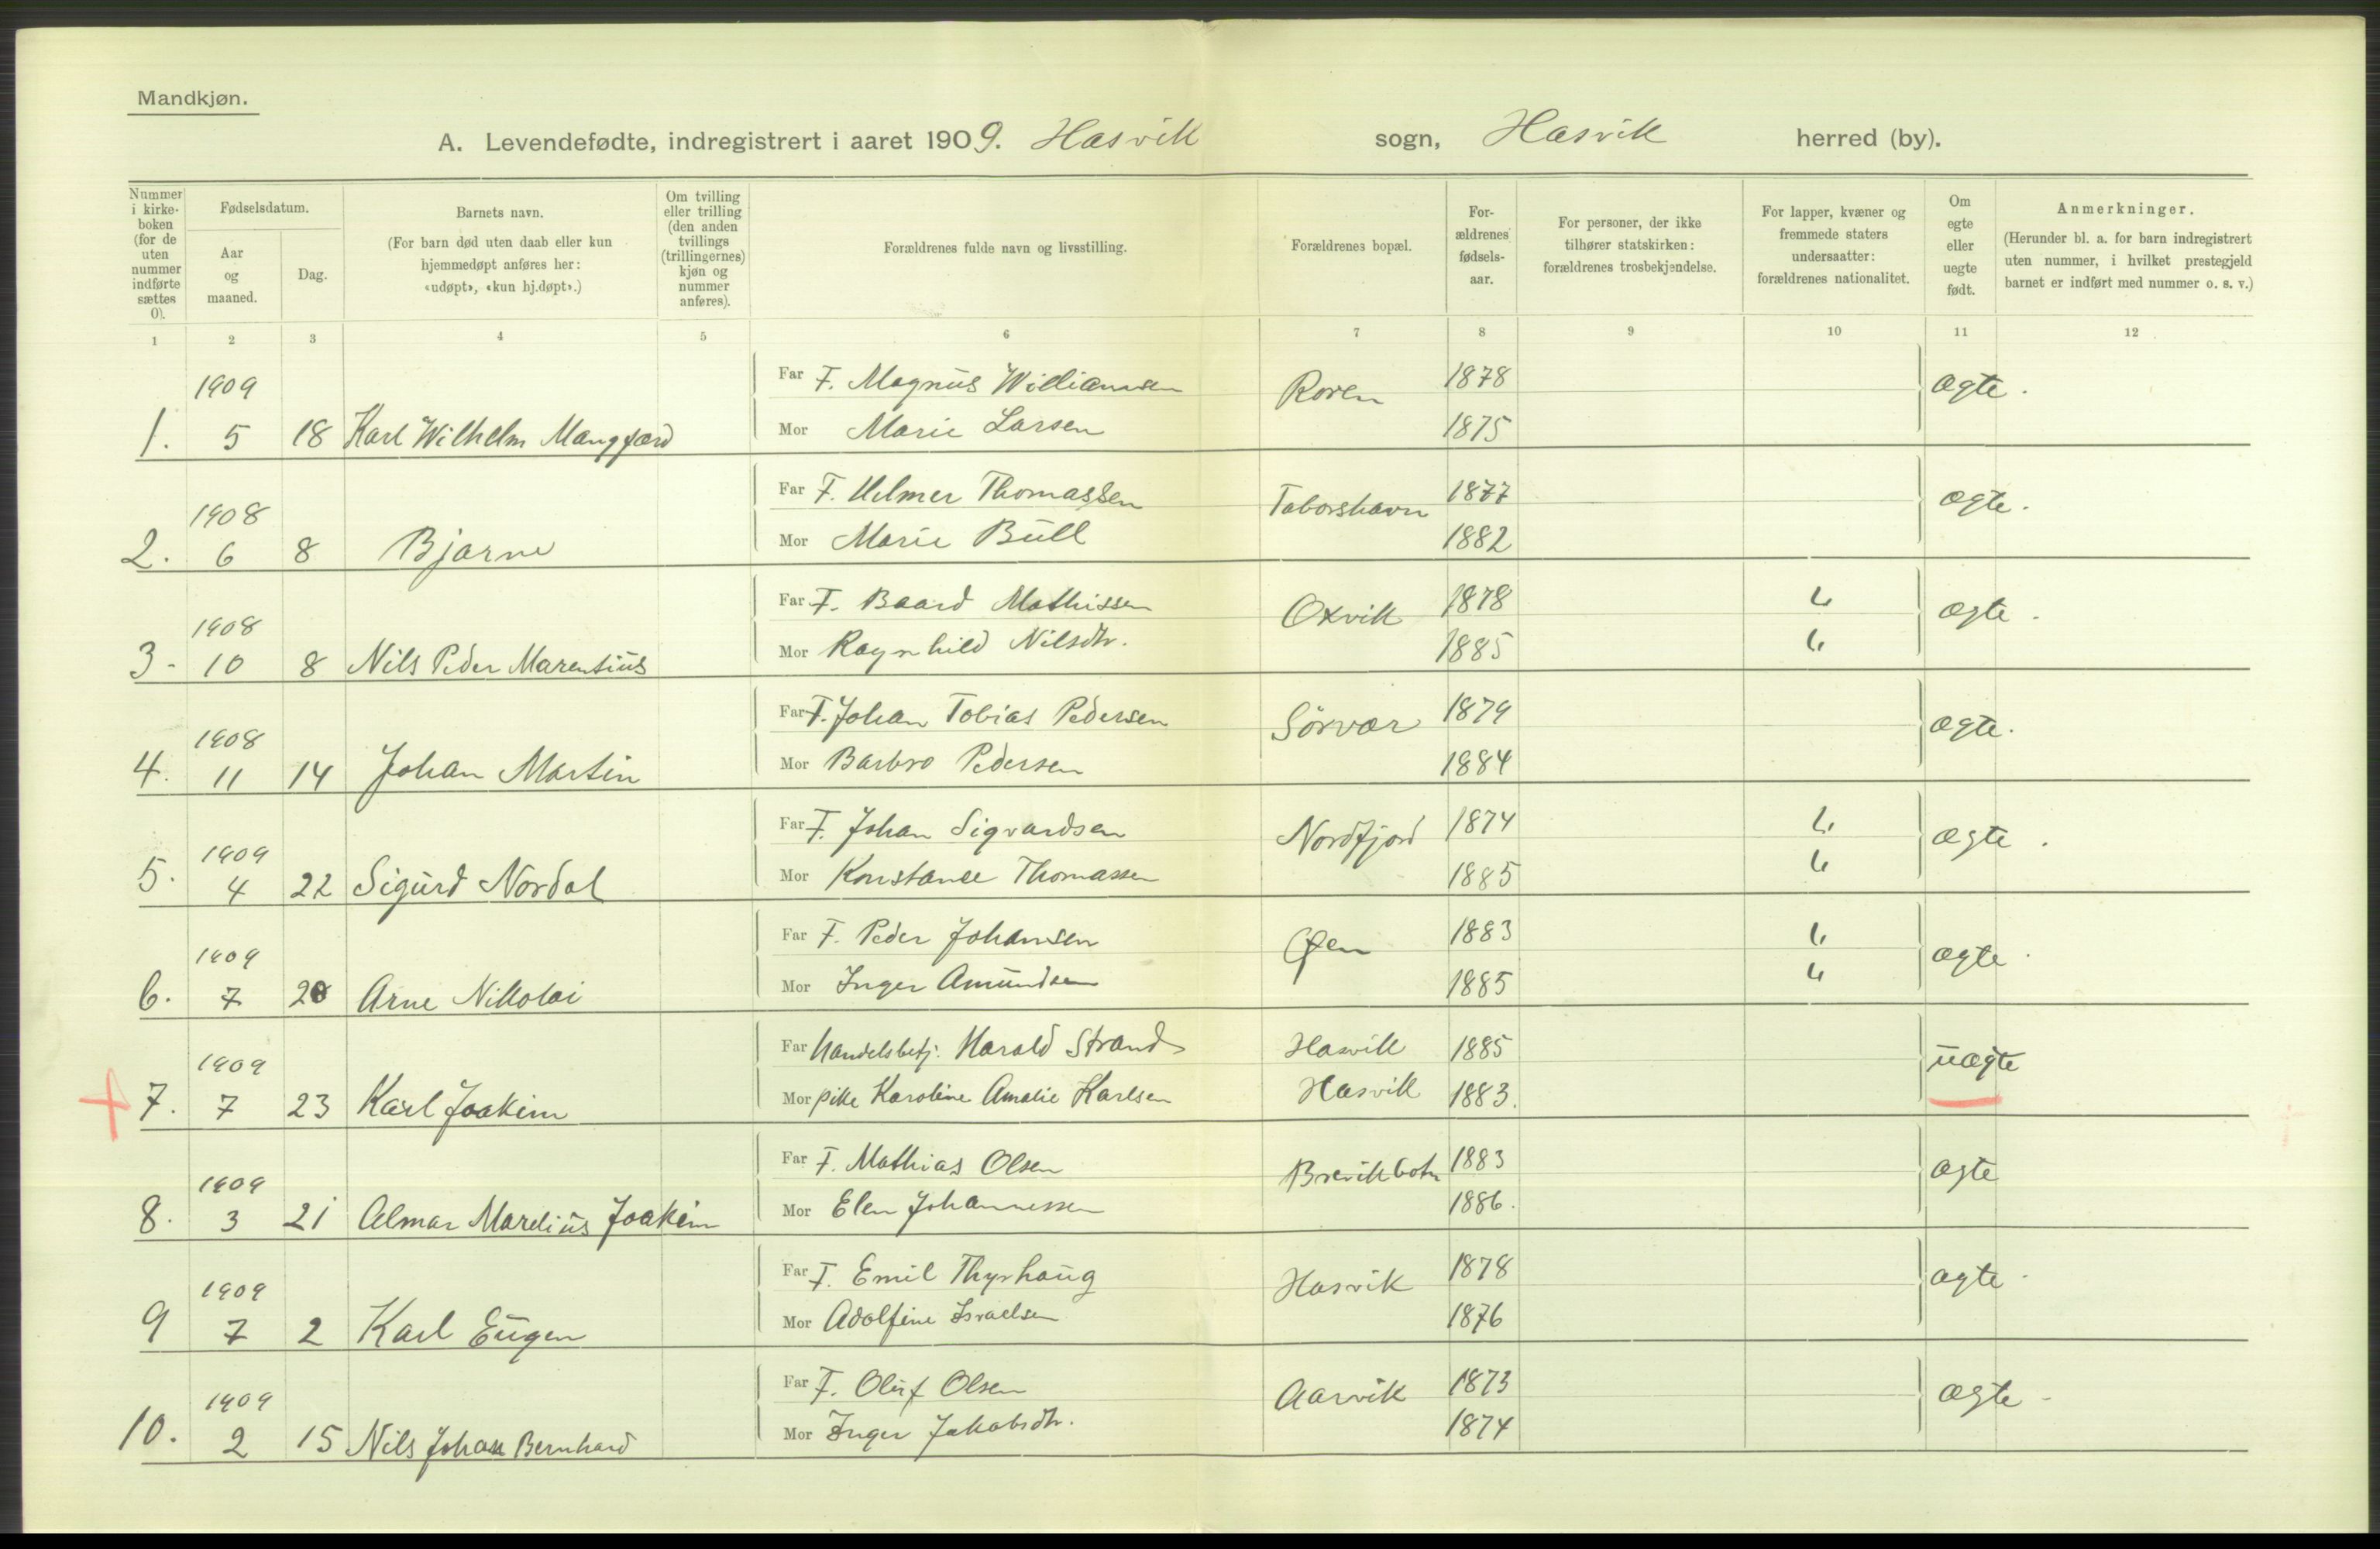 Mandkjøn.
A. Levendefødte, indregistrert i aaret 1909. Hasvik sogn, Hasvik herred (by).
Nummer i kirke-boken (for de uten nummer indførte sættes 0).
Fødselsdatum.
Aar og maaned.
Dag.
Barnets navn.
(For barn død uten daab eller kun hjemmedøpt anføres her: «udøpt», «kun hj.døpt».)
Om tvilling eller trilling (den anden tvillings (trillingernes) kjøn og nummer anføres).
Forældrenes fulde navn og livsstilling.
Forældrenes bopæl.
For-ældrenes fødsels-aar.
For personer, der ikke tilhører statskirken: forældrenes trosbekjendelse.
For lapper, kvæner og fremmede staters undersaatter: forældrenes nationalitet.
Om egte eller uegte født.
Anmerkninger.
(Herunder bl. a. for barn indregistrert uten nummer, i hvilket prestegjeld barnet er indført med nummer o. s. v.)
1 2 3 4 5 6 7 8 9 10 11 12
1909 Far F. Magnus Williamsen Roren 1878 ægte.
1. 5 18 Karl Wilhelm Mangfard Mor Marie Larsen 1875
1908 Far F. Helmer Thomassen Taborshavn 1877 ægte.
2. 6 8 Bjarne Mor Marie Bull 1882
1908 Far F. Baard Mathissen Oxvik 1878 L. ægte.
3. 10 8 Nils Peder Marentius Mor Ragnhild Nilsdtr. 1885 L.
1908 Far F. Johan Tobias Pedersen Sörvær 1879 ægte.
4. 11 14 Johan Martin Mor Barbro Pedersen 1884
1909 Far F. Johan Sigvardsen Nordfjord 1874 L. ægte.
5. 4 22 Sigurd Nordal Mor Konstance Thomassen 1885 L.
1909 Far F. Peder Johansen Øen 1883 L. ægte.
6. 7 20 Arne Nikolai Mor Inger Amundsen 1885 L.
1909 Far Handelsbetj. Harald Strand Hasvik 1885 uægte
7. 7 23 Karl Joakim Mor pike Karoline Amalie Karlsen Hasvik 1883.
1909 Far F. Mathias Olsen Brevikbotn 1883 ægte
8. 3 21 Almar Marelius Joakim Mor Elen Johannessen 1886.
1909 Far F. Emil Thyrhaug Hasvik 1878 ægte
9 7 2 Karl Eugen Mor Adolfine Israelsen 1876
1909 Far F. Oluf Olsen Aarvik 1873 ægte
10. 2 15 Nils Johan Bernhard Mor Inger Jakobsdtr. 1874